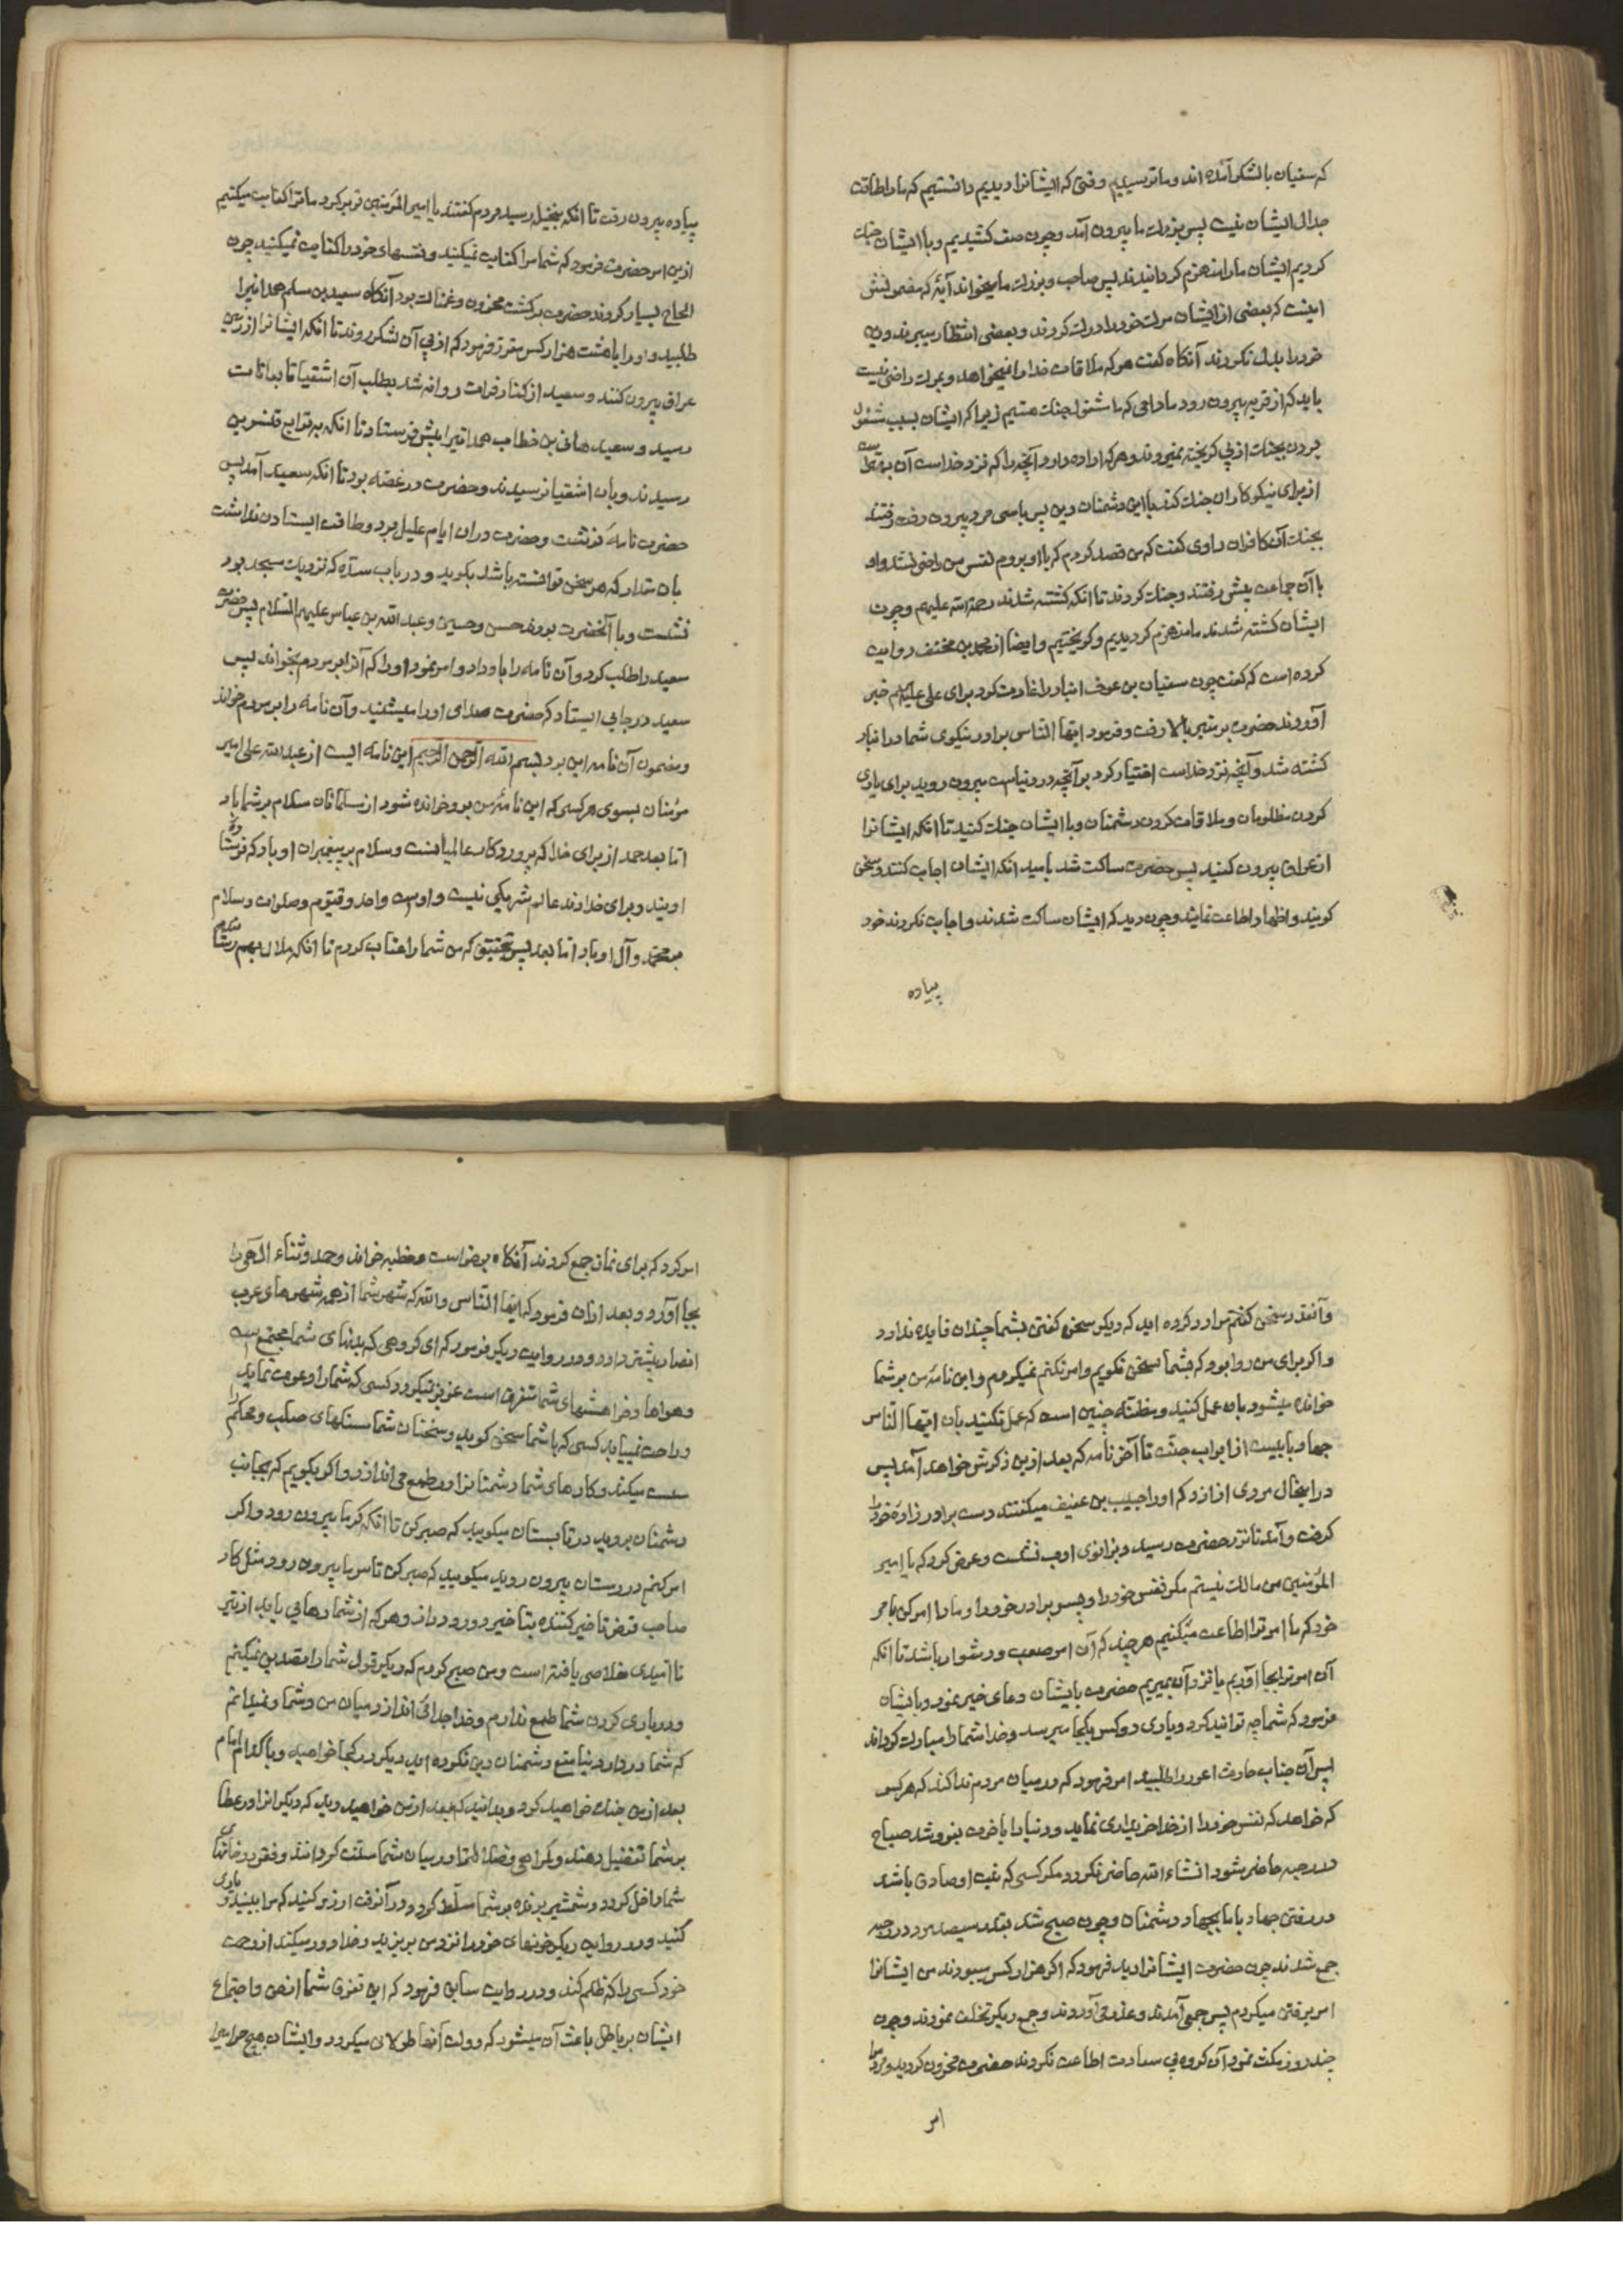 که سفیان با لشکر آمده اند و ما ترسیدیم وقتی که ایشانرا دیدیم دانستیم که ما را طاقت
جدال ایشان نیست پس بزرك ما بیرون آمد و چون صف کشیدیم و با ایشان جنك
کردیم ایشان ما را منهزم گردانیدند پس صاحب و بزرك ما میخواند آیۀ که مضمونش
اینست که بعضی از ایشان مرك خود را درك کردند و بعضی انتظار میبرند و دین
خود را بدل نکردند آنکاه گفت هر که ملاقات خدا را نمیخواهد و بمرك راضی نیست
باید که از قریه بیرون رود مادامی که ما مشغول جنك هستیم زیرا که ایشان بسبب مشغول
بودن بجنك از پی گریخته نمیروند و هر که اراده دارد آنچه را که نزد خداست آن بهتر است
از برای نیکوکاران جنك کند با این دشمنان دین پس با سی مرد بیرون رفت رفتند
بجنك آن کافران راوی گفت که من قصد کردم که با او بروم نفس من راضی نشد و او
با آن جماعت پیش رفتند و جنك کردند تا انکه کشته شدند رحمة الله علیهم و چون
ایشان کشته شدند ما منهزم کردیدیم و گریختیم و ایضا از محمد بن مخنف روایت
کرده است که گفت چون سفیان بن عوف انبار را غارت کرد برای علی علیه السلام خبر
آوردند حضرت بر منبر بالا رفت و فرمود ایها الناس برادر نیکوی شما در انبار
کشته شد و آنچه نزد خداست اختیار کرد بر آنچه در دنیاست بیرون روید برای یاری
کردن مظلومان و ملاقات کردن دشمنان و با ایشان جنك کنید تا انکه ایشانرا
از عراق بیرون کنید پس حضرت ساکت شد بامید انکه ایشان اجابت کنند و سخن
گویند و اظهار اطاعت نمایند و چون دید که ایشان ساکت شدند و اجابت نکردند خود
پیاده
پیاده بیرون رفت تا انکه بنخیله رسید مردم گفتند یا امیر المؤمنین تو برگرد ما ترا کفایت میکنیم
ازین امر حضرت فرمود که شما مرا کفایت نمیکنید و نفسهای خود را کفایت نمیکنید چون
الحاح بسیار کردند حضرت برگشت محزون و غمناك بود آنکاه سعید بن مسلم همدانیرا
طلبید و او را با هشت هزار کس مقرر فرمود که از پی آن لشکر روند تا انکه ایشانرا از زمین
عراق بیرون کنند و سعید از کنار فرات روانه شد بطلب آن اشقیا تا بعانات
رسید و سعید هانی بن خطاب همدانیرا پیش فرستاد تا انکه به توابع قنسرین
رسیدند و بان اشقیا نرسیدند و حضرت در غصه بود تا انکه سعید آمد پس
حضرت نامۀ نوشت و حضرت دران ایام علیل بود و طاقت ایستادن نداشت
بان مقدار که هر سخن تواند باشد بگوید و در باب سده که نزدیك مسجد بود
نشست و با آنحضرت بودند حسن و حسین و عبد الله بن عباس علیهم السلام پس حضرت
سعید را طلب کرد و آن نامه را باو داد و امر نمود او را که آنرا بر مردم بخواند پس
سعید در جایی ایستاد که حضرت صدای او را میشنید و آن نامه را بر مردم خواند
و مضمون آن نامه این بود بسم الله الرحمن الرحیم این نامه ایست از عبد الله علی امیر
مؤمنان بسوی هر کسی که این نامۀ من برو خوانده شود از مسلمانان سلام بر شما باد
اما بعد حمد از برای خدا که پروردگار عالمیانست و سلام بر پیغمبران او باد که فرستادۀ
اویند و برای خداوند عالم شریکی نیست و اوست واحد و قیوم و صلوات و سلام
بر محمد و آل او باد اما بعد پس بتحقیق که من شما را عتاب کردم تا انکه ملال بهم رسید
و آنقدر سخن گفتم مرا رد کرده اید که دیکر سخن گفتن بشما چندان فایده ندارد
و اگر برای من روا بود که بشما سخن نگویم و امر نکنم نمیکردم و این نامۀ من بر شما
خوانده میشود بان عمل کنید و مظنه چنین است که عمل نکنید بان ایها الناس
جهاد بابیست از ابواب جنت تا آخر نامه که بعد ازین ذکرش خواهد آمد پس
در اینحال مردی از ازد که او را حبیب بن عفیف میگفتند دست برادر زادۀ خود را
گرفت و آمد تا نزد حضرت رسید و بزانوی ادب نشست و عرض کرد که یا امیر
المؤمنین من مالك نیستم مگر نفس خود را و پسر برادر خود را و ما را امر کن بامر
خود که ما امر ترا اطاعت میکنیم هر چند که آن امر صعب و دشوار باشد تا انکه
آن امر ترا بجا آوریم یا نزد آن بمیریم حضرت بایشان دعای خیر نمود و بایشان
فرمود که شما چه توانید کرد و یاری دو کس بکجا میرسد و خدا شما را مبارك گرداند
پس آن جناب حارث اعور را طلبید امر فرمود که در میان مردم ندا کند که هر کس
که خواهد که نفس خود را از خدا خریداری نماید و دنیا را باخرت بفروشد صباح
در رحبه حاضر شود انشاء الله حاضر نگردد مگر کسی که نیت او صادق باشد
در رفتن جهاد با ما بجهاد دشمنان و چون صبح شد بقدر سیصد مرد در رحبه
جمع شدند چون حضرت ایشانرا دید فرمود که اگر هزار کس میبودند من ایشانرا
امر برفتن میکردم پس جمعی آمدند و عذری آوردند و جمع دیکر تخلف نمودند و چون
چند روز مکث نمود آن گروه بی سعادت اطاعت نکردند حضرت محزون گردید و مردم را
امر
امر کرد که برای نماز جمع کردند آنکاه برخواست و خطبه خواند و حمد و ثناء الهی را
بجا آورد و بعد ازان فرمود که ایها الناس و الله که شهر شما از همه شهرهای عرب
انصار بیشتر دارد و در روایت دیکر فرمود که ای گروهی که بدنهای شما مجتمع است
و هواها و خواهشهای شما متفرق است عزیز نیگردد کسی که شما را دعوت نماید
و راحت نمییابد کسی که با شما سخن گوید و سخنان شما سنگهای صلب و محکم را
سست میکند و کارهای شما دشمنانرا در طمع می اندازد و اگر بگویم که بجانب
دشمنان بروید در تابستان میگویید که صبر کن تا انکه گرما بیرون رود و اگر
امر کنم در زمستان بیرون روید میگویید که صبر کن تا سرما بیرون رود مثل کار
صاحب قرض تاخیر کننده بتاخیر دور و دراز و هر که از شما رهایی یابد از تیر
نا امیدی خلاصی یافته است و من صبح کردم که دیکر قول شما را تصدیق نمیکنم
و در یاری کردن شما طمع ندارم و خدا جدائی اندازد میان من و شما و نمیدانم
که شما در دار دنیا منع دشمنان دین نکرده اید دیکر در کجا خواهید و با کدام امام
بعد ازین جنك خواهید کرد و بدانید که بعد ازین خواهید دید که دیکرانرا در عطا
بر شما تفضیل دهند و گمراهی و ضلالت را در میان شما سنت گردانند و فقر در خانهای
شما داخل گردد و شمشیر برنده بر شما مسلط گردد و در آنوقت ارزو کنید که مرا ببینید و یاری
کنید و در روایت دیکر خونهای خود را نزد من بریزید و خدا دور میکند از رحمت
خود کسی را که ظلم کند و در روایت سابق فرمود که این تفرق شما از حق و اجتماع
ایشان بر باطل باعث آن میشود که دولت آنها طولانی میگردد و ایشان هیچ حرامیرا